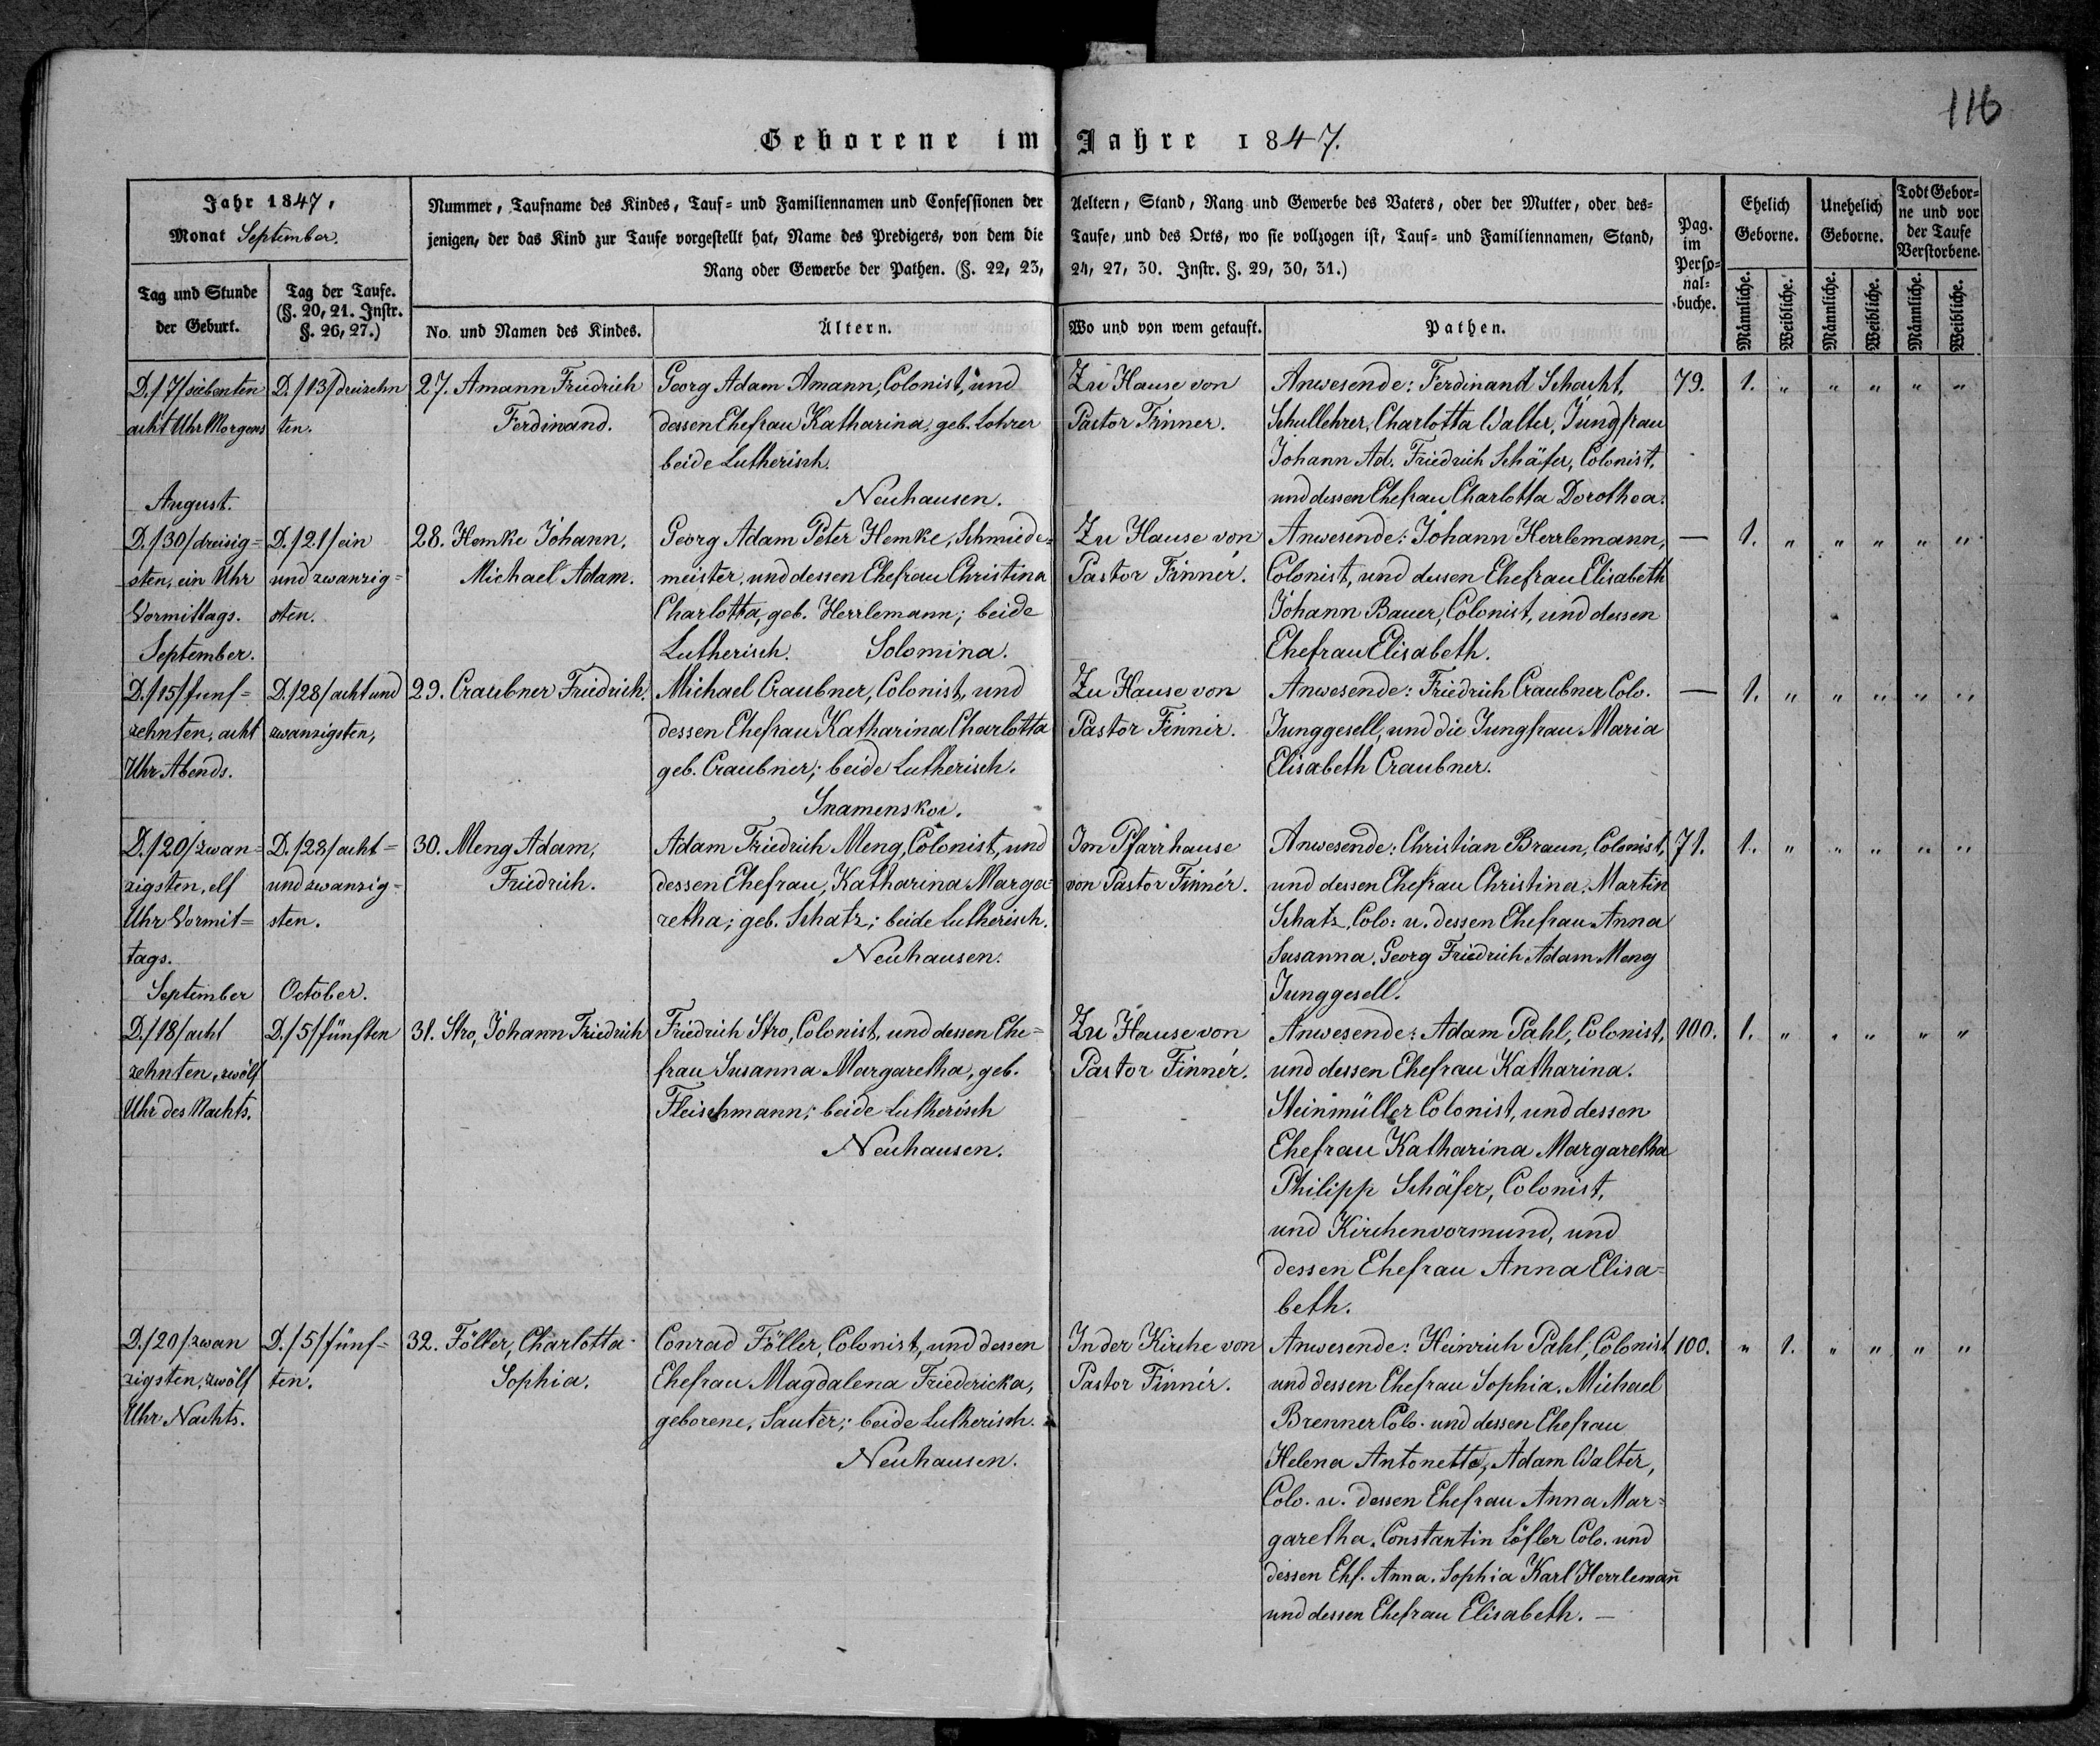 116
Geborene im Jahre 1847.
Jahr 1847,
Monat September.
Nummer, Taufname des Kindes, Tauf= und Familiennamen und Confessionen der Aeltern, Stand, Rang und Gewerbe des Vaters, oder der Mutter, oder des=
jenigen, der das Kind zur Taufe vorgestellt hat, Name des Predigers, von dem die Taufe, und des Orts, wo sie vollzogen ist, Tauf= und Familiennamen, Stand,
Rang oder Gewerbe der Pathen. (§. 22, 23, 24, 27, 30. Instr. §. 29, 30, 31.)
Tag und Stunde
der Geburt.
Tag der Taufe.
(§. 20, 21. Instr.
§. 26, 27.)
No. und Namen des Kindes.
Ältern.
Wo und von wem getauft.
Pathen.
Pag.
im
Perso=
nal=
buche.
Ehelich
Geborne.
Unehelich
Geborne.
Todt Gebor=
ne und vor
der Taufe
Verstorbene.
Männliche.
Weibliche.
Männliche.
Weibliche.
Männliche.
Weibliche.
D./7/siebenten
acht Uhr Morgens
D./13/dreizehn
ten.
27. Amann Friedrich
Ferdinand.
Georg Adam Amann, Colonist, und
dessen Ehefrau Katharina, geb. Lohrer
beide Lutherisch.
Neuhausen.
Zu Hause von
Pastor Finner.
Anwesende: Ferdinand Schacht,
Schullehrer, Charlotta Walter, Jungfrau
Johann Ad. Friedrich Schäfer, Colonist,
und dessen Ehefrau Charlotta Dorothea.
79. 1. " " " " "
August.
D./30/dreisig=
sten, ein Uhr
Vormittags.
D./21/ein
und zwanzig=
sten.
28. Hemke Johann,
Michael Adam.
Georg Adam Peter Hemke, Schmiede=
meister, und dessen Ehefrau Christina
Charlotta, geb. Herrlemann; beide
Lutherisch. Solomina.
Zu Hause von
Pastor Finnér.
Anwesende: Johann Herrlemann,
Colonist, und dessen Ehefrau Elisabeth
Johann Bauer, Colonist, und dessen
Ehefrau Elisabeth.
— 1. " " " " "
September.
D./15/funf=
zehnten, acht
Uhr Abends.
D./28/acht und
zwanzigsten,
29. Craubner Friedrich.
Michael Craubner, Colonist, und
dessen Ehefrau Katharina Charlotta
geb. Craubner; beide Lutherisch.
Snamenskoe.
Zu Hause von
Pastor Finnér.
Anwesende: Friedrich Craubner Colo.
Junggesell, und die Jungfrau Maria
Elisabeth Craubner.
— 1. " " " " "
D./20/zwan=
zigsten, elf
Uhr Vormit=
tags.
D./28/acht=
und zwanzig=
sten.
30. Meng Adam,
Friedrich.
Adam Friedrich Meng, Colonist, und
dessen Ehefrau, Katharina Marga=
retha; geb. Schatz; beide Lutherisch.
Neuhausen.
Im Pfarrhause
von Pastor Finnér.
Anwesende: Christian Braun, Colonist,
und dessen Ehefrau Christina. Martin
Schatz, Colo: u. dessen Ehefrau Anna
Susanna. Georg Friedrich Adam Meng
Junggesell.
71. 1. " " " " "
September
D./18/acht
zehnten, zwölf
Uhr des Nachts.
October.
D./5/fünften
31. Stro, Johann Friedrich
Friedrich Stro, Colonist, und dessen Ehe=
frau Susanna Margaretha, geb.
Fleischmann; beide Lutherisch
Neuhausen.
Zu Hause von
Pastor Finnér.
Anwesende: Adam Pahl, Colonist,
und dessen Ehefrau Katharina.
Steinmüller Colonist, und dessen
Ehefrau Katharina Margaretha
Philipp Schäfer, Colonist,
und Kirchenvormund, und
dessen Ehefrau Anna Elisa=
beth.
100. 1. " " " " "
D./20/zwan
zigsten, zwölf
Uhr Nachts.
D./5/fünf=
ten.
32. Föller, Charlotta
Sophia.
Conrad Föller, Colonist, und dessen
Ehefrau Magdalena Friedericka,
geborene, Sauter; beide Lutherisch.
Neuhausen.
In der Kirche von
Pastor Finnér.
Anwesende: Heinrich Pahl, Colonist
und dessen Ehefrau Sophia. Michael
Brenner Colo. und dessen Ehefrau
Helena Antonetta, Adam Walter,
Colo. u. dessen Ehefrau Anna Mar=
garetha. Constantin Löfler Colo. und
dessen Ehf. Anna. Sophia Karl Herrlemañ
und dessen Ehefrau Elisabeth. —
100. " 1. " " " "